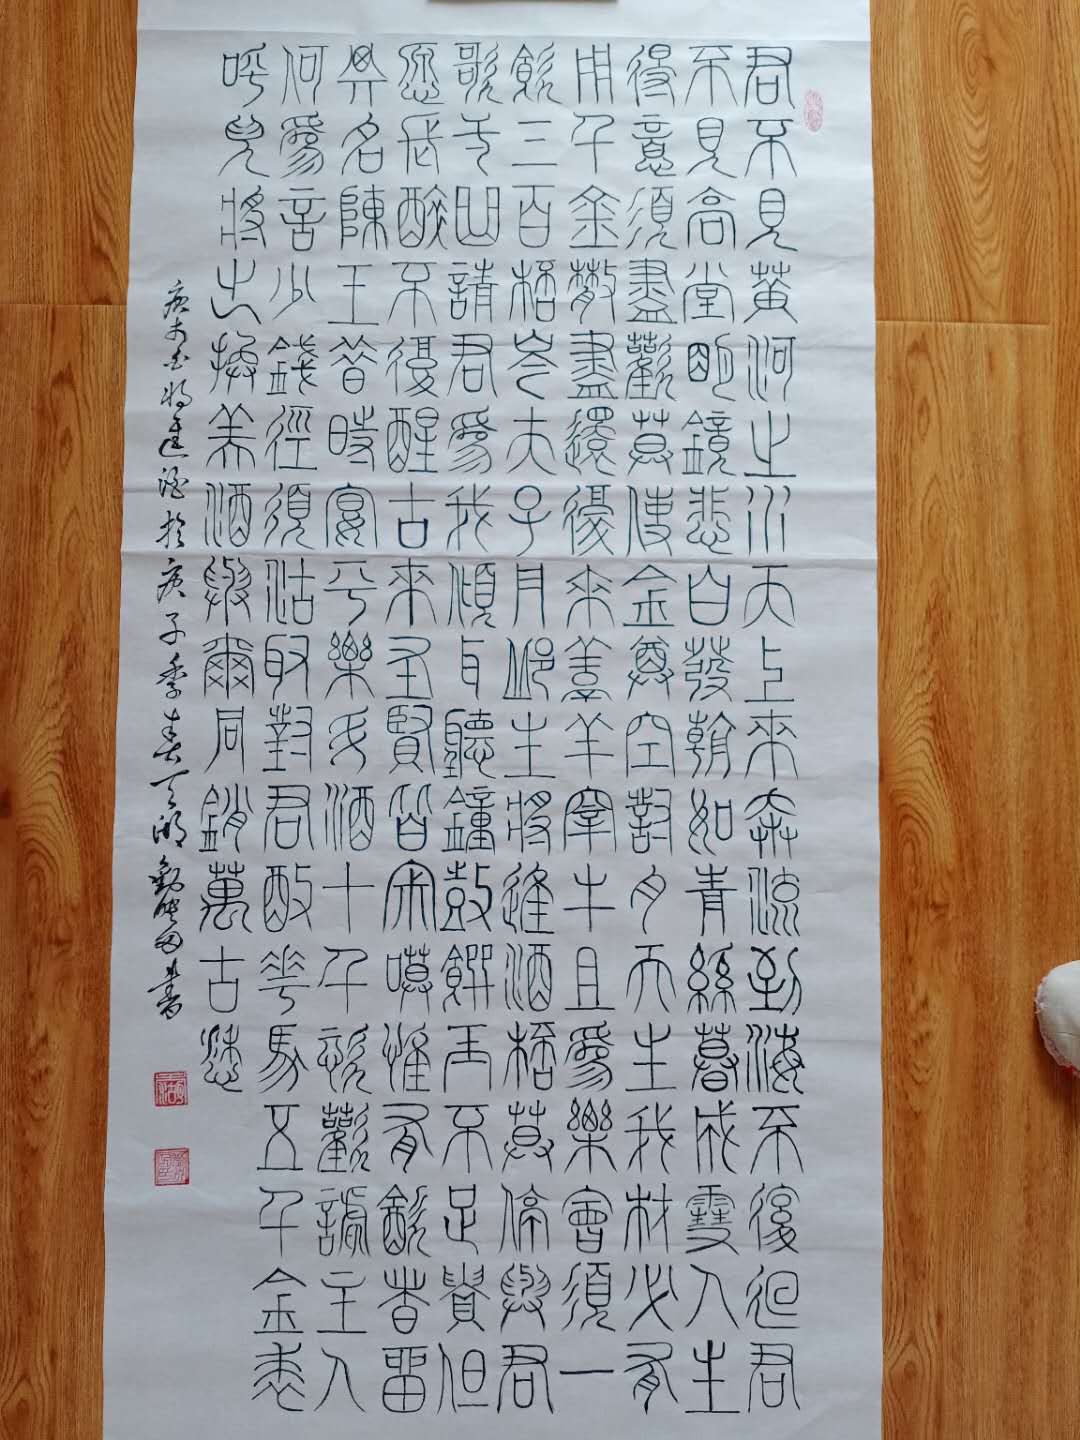 君不見黃河之水天上來奔流到海不復迴君
不見高堂明鏡悲白發朝如青絲暮成雪人生
得意須盡歡莫使金尊空對月天生我材必有
用千金散盡還復來烹羊宰牛且爲樂會須一
飲三百桮岑夫子丹邱生將進酒桮莫停與君
歌一曲請君爲我傾耳聽鐘鼓饌玉不足貴但
愿長醉不復醒古來聖賢皆寂寞惟有飲者留
其名陳王昔時宴平樂斗酒十千恣歡謔主人
何爲言少錢徑須沽取對君酌花馬五千金裘
呼兒將出換美酒與爾同銷萬古愁
唐李白將進酒於庚子季春書